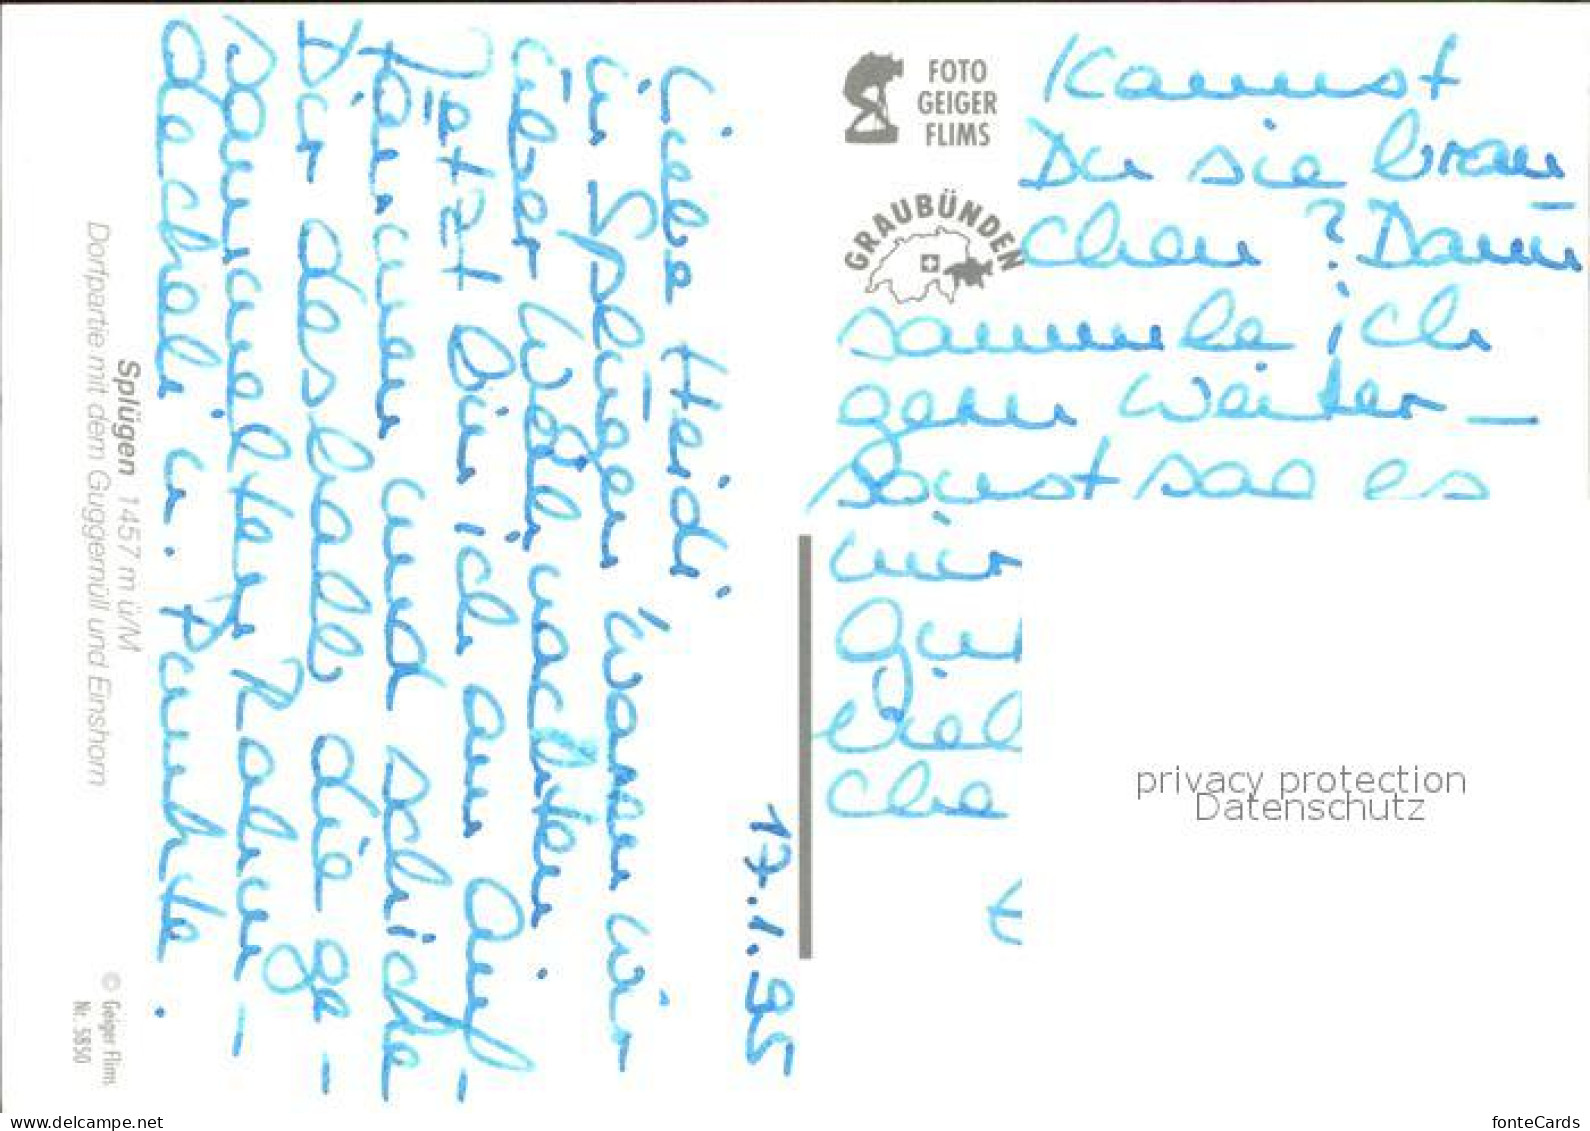 17.1.95
Liebe Heidi,
in Splügen waren wir
über Weihnachten.
Jetzt bin ich am Auf-
räumen und schicke
Dir deshalb die ge-
sammelten Rahm-
decheli u. Punkte.
Kannst
Du sie brau-
chen? Dann
sammle ich
gern weiter –
sonst sag es
mir
Gu
che
Splügen 1457 m ü/M
Dorfpartie mit dem Guggernüll und Einshorn
© Geiger Flims
Nr. 5850
FOTO
GEIGER
FLIMS
GRAUBÜNDEN
privacy protection
Datenschutz
www.delcampe.net
fonteCards